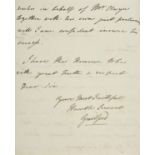 in behalf of Mr
together with his own good
will I am confident insure his
success.
I have the Honour to be
with great truth & respect
Dear Sir
Your Most Faithful
Humble Servant
Guilford